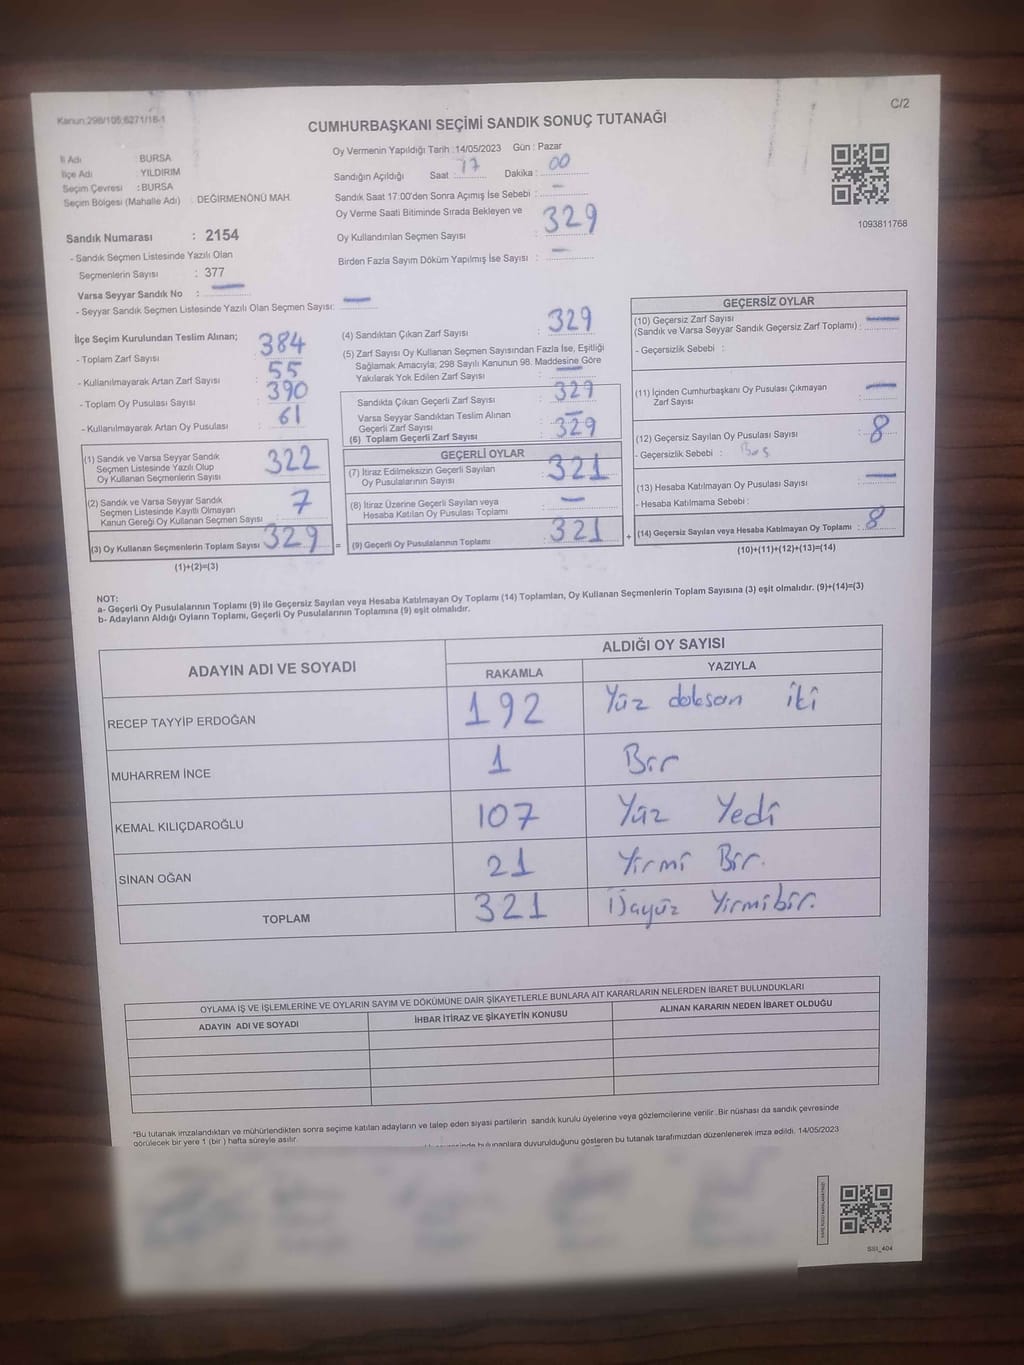 Kanun:298/105;6271/18-1
C/2
CUMHURBAŞKANI SEÇİMİ SANDIK SONUÇ TUTANAĞI
İl Adı : BURSA
İlçe Adı : YILDIRIM
Seçim Çevresi : BURSA
Seçim Bölgesi (Mahalle Adı) : DEĞİRMENÖNÜ MAH.
Sandık Numarası : 2154
- Sandık Seçmen Listesinde Yazılı Olan
Seçmenlerin Sayısı : 377
Varsa Seyyar Sandık No : —
- Seyyar Sandık Seçmen Listesinde Yazılı Olan Seçmen Sayısı: —
Oy Vermenin Yapıldığı Tarih :14/05/2023 Gün : Pazar
Sandığın Açıldığı Saat : 17 Dakika : 00
Sandık Saat 17:00'den Sonra Açımış İse Sebebi : —
Oy Verme Saati Bitiminde Sırada Bekleyen ve
Oy Kullandırılan Seçmen Sayısı : 329
Birden Fazla Sayım Döküm Yapılmış İse Sayısı : —
1093811768
İlçe Seçim Kurulundan Teslim Alınan;
- Toplam Zarf Sayısı : 384
- Kullanılmayarak Artan Zarf Sayısı : 55
- Toplam Oy Pusulası Sayısı : 390
- Kullanılmayarak Artan Oy Pusulası : 61
(1) Sandık ve Varsa Seyyar Sandık
Seçmen Listesinde Yazılı Olup
Oy Kullanan Seçmenlerin Sayısı : 322
(2) Sandık ve Varsa Seyyar Sandık
Seçmen Listesinde Kayıtlı Olmayan
Kanun Gereği Oy Kullanan Seçmen Sayısı : 7
(3) Oy Kullanan Seçmenlerin Toplam Sayısı : 329
(1)+(2)=(3)
(4) Sandıktan Çıkan Zarf Sayısı : 329
(5) Zarf Sayısı Oy Kullanan Seçmen Sayısından Fazla İse, Eşitliği
Sağlamak Amacıyla; 298 Sayılı Kanunun 98. Maddesine Göre
Yakılarak Yok Edilen Zarf Sayısı : —
Sandıkta Çıkan Geçerli Zarf Sayısı : 329
Varsa Seyyar Sandıktan Teslim Alınan
Geçerli Zarf Sayısı : —
(6) Toplam Geçerli Zarf Sayısı : 329
GEÇERLİ OYLAR
(7) İtiraz Edilmeksizin Geçerli Sayılan
Oy Pusulalarının Sayısı : 321
(8) İtiraz Üzerine Geçerli Sayılan veya
Hesaba Katılan Oy Pusulası Toplamı : —
= (9) Geçerli Oy Pusulalarının Toplamı : 321
GEÇERSİZ OYLAR
(10) Geçersiz Zarf Sayısı
(Sandık ve Varsa Seyyar Sandık Geçersiz Zarf Toplamı) : —
- Geçersizlik Sebebi :
(11) İçinden Cumhurbaşkanı Oy Pusulası Çıkmayan
Zarf Sayısı : —
(12) Geçersiz Sayılan Oy Pusulası Sayısı : 8
- Geçersizlik Sebebi : Boş
(13) Hesaba Katılmayan Oy Pusulası Sayısı : —
- Hesaba Katılmama Sebebi :
+ (14) Geçersiz Sayılan veya Hesaba Katılmayan Oy Toplamı : 8
(10)+(11)+(12)+(13)=(14)
NOT:
a- Geçerli Oy Pusulalarının Toplamı (9) ile Geçersiz Sayılan veya Hesaba Katılmayan Oy Toplamı (14) Toplamları, Oy Kullanan Seçmenlerin Toplam Sayısına (3) eşit olmalıdır. (9)+(14)=(3)
b- Adayların Aldığı Oyların Toplamı, Geçerli Oy Pusulalarının Toplamına (9) eşit olmalıdır.
ADAYIN ADI VE SOYADI
ALDIĞI OY SAYISI
RAKAMLA YAZIYLA
RECEP TAYYİP ERDOĞAN 192 Yüz doksan iki
MUHARREM İNCE 1 Bir
KEMAL KILIÇDAROĞLU 107 Yüz Yedi
SİNAN OĞAN 21 Yirmi Bir.
TOPLAM 321 Üçyüz Yirmibir.
OYLAMA İŞ VE İŞLEMLERİNE VE OYLARIN SAYIM VE DÖKÜMÜNE DAİR ŞİKAYETLERLE BUNLARA AİT KARARLARIN NELERDEN İBARET BULUNDUKLARI
ADAYIN ADI VE SOYADI İHBAR İTİRAZ VE ŞİKAYETİN KONUSU ALINAN KARARIN NEDEN İBARET OLDUĞU
*Bu tutanak imzalandıktan ve mühürlendikten sonra seçime katılan adayların ve talep eden siyasi partilerin sandık kurulu üyelerine veya gözlemcilerine verilir .Bir nüshası da sandık çevresinde
görülecek bir yere 1 (bir ) hafta süreyle asılır.
bulunanlara duyurulduğunu gösteren bu tutanak tarafımızdan düzenlenerek imza edildi. 14/05/2023
SSI_404